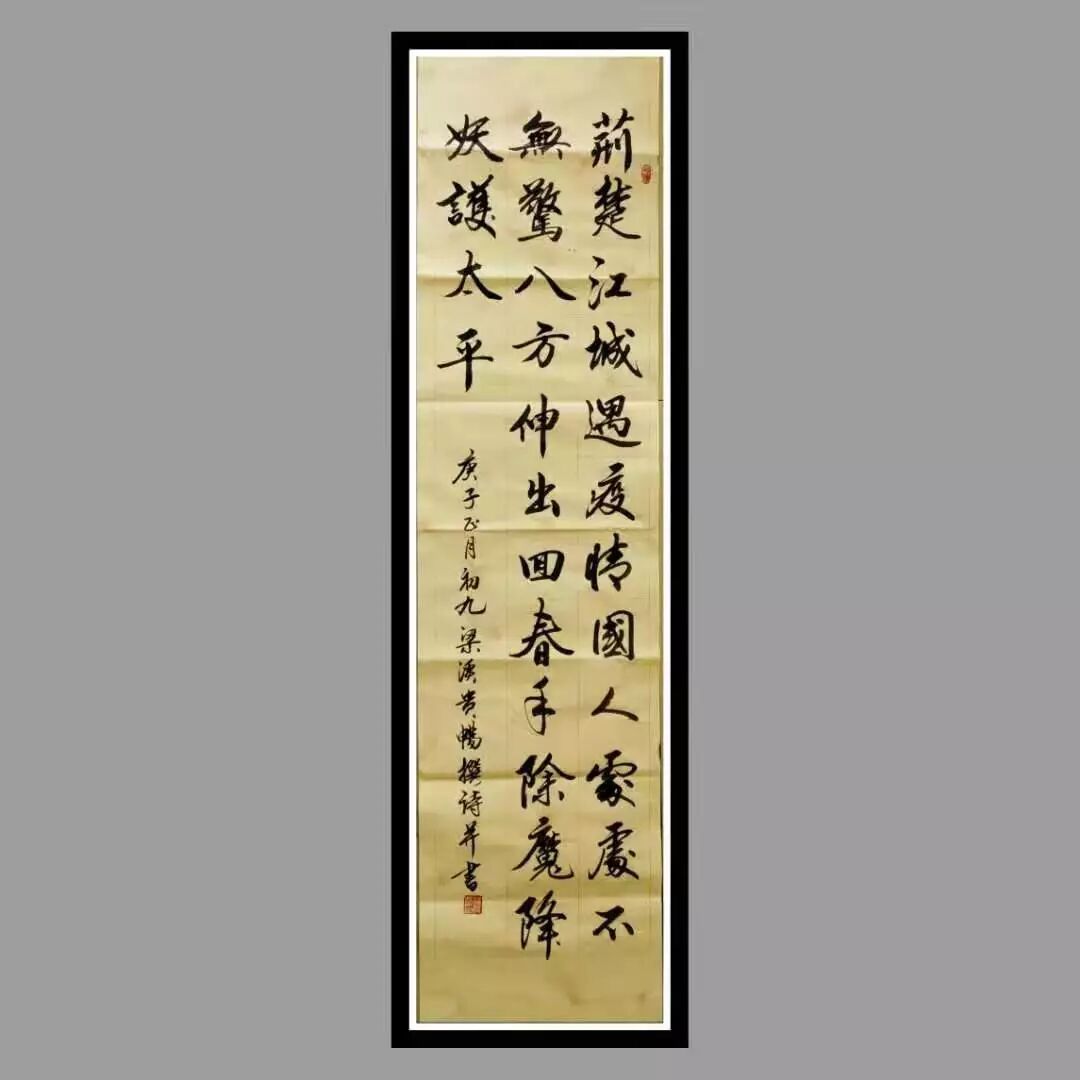 荊楚江城遇疫情國人處處不
無驚八方伸出回春手除魔降
妖護太平
庚子正月初九梁溪貴暢撰詩并書